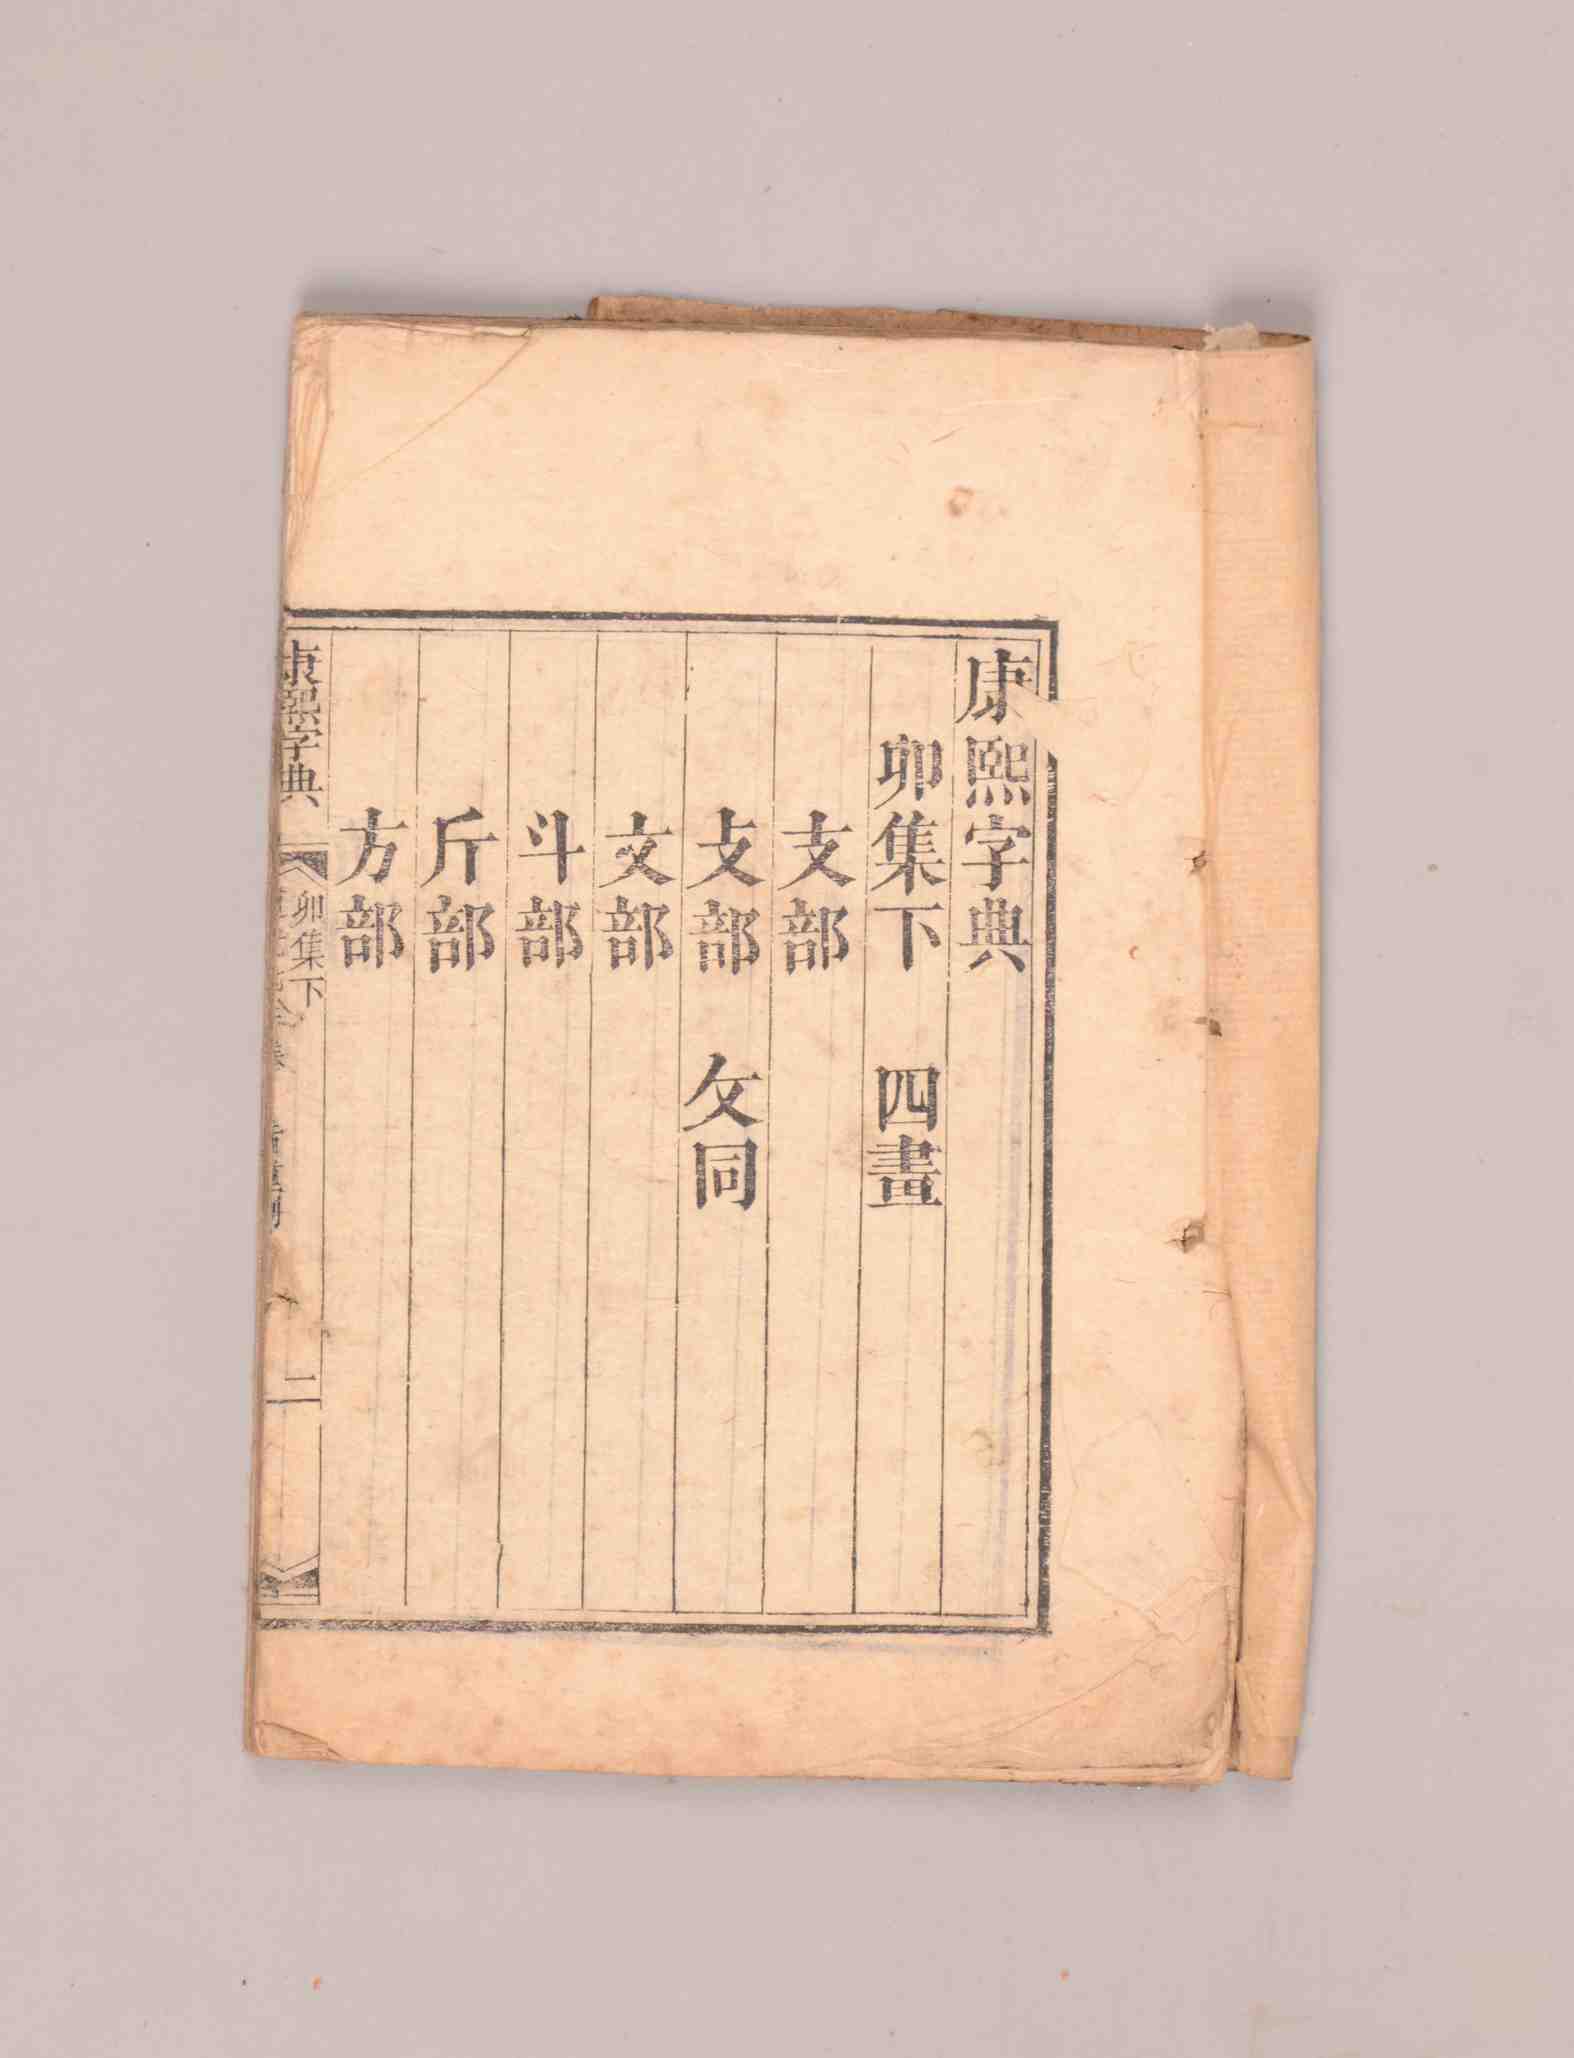 康熙字典
卯集下　四畫
支部
攴部　攵同
文部
斗部
斤部
方部
康熙字典
卯集下
二